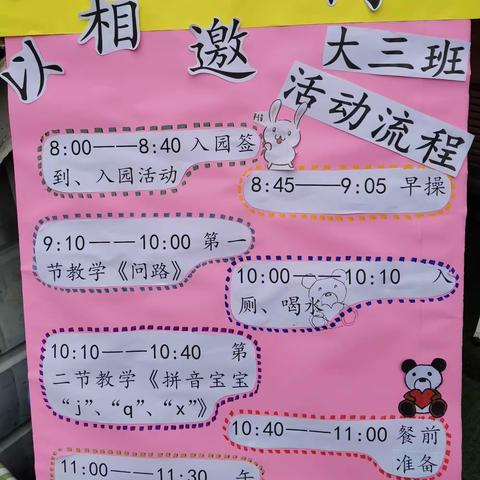 以相邀
大三班
活动流程
Hi
8:00——8:40 入园签
到、入园活动
8:45——9:05 早操
9:10——10:00 第一
节教学《问路》
10:00——10:10 入
厕、喝水
10:10——10:40 第
二节教学《拼音宝宝
“j”、“q”、“x”》
10:40——11:00 餐前
准备
11:00——11:30 午